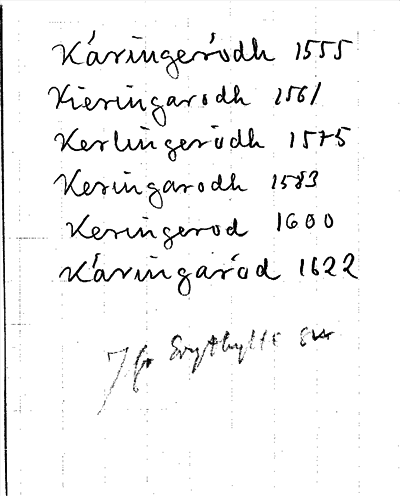 Káringerödh 1555
Kieringarodh 1561
Kerlingerödh 1575
Keringarodh 1583
Keringerod 1600
Káringaröd 1622
Jfr